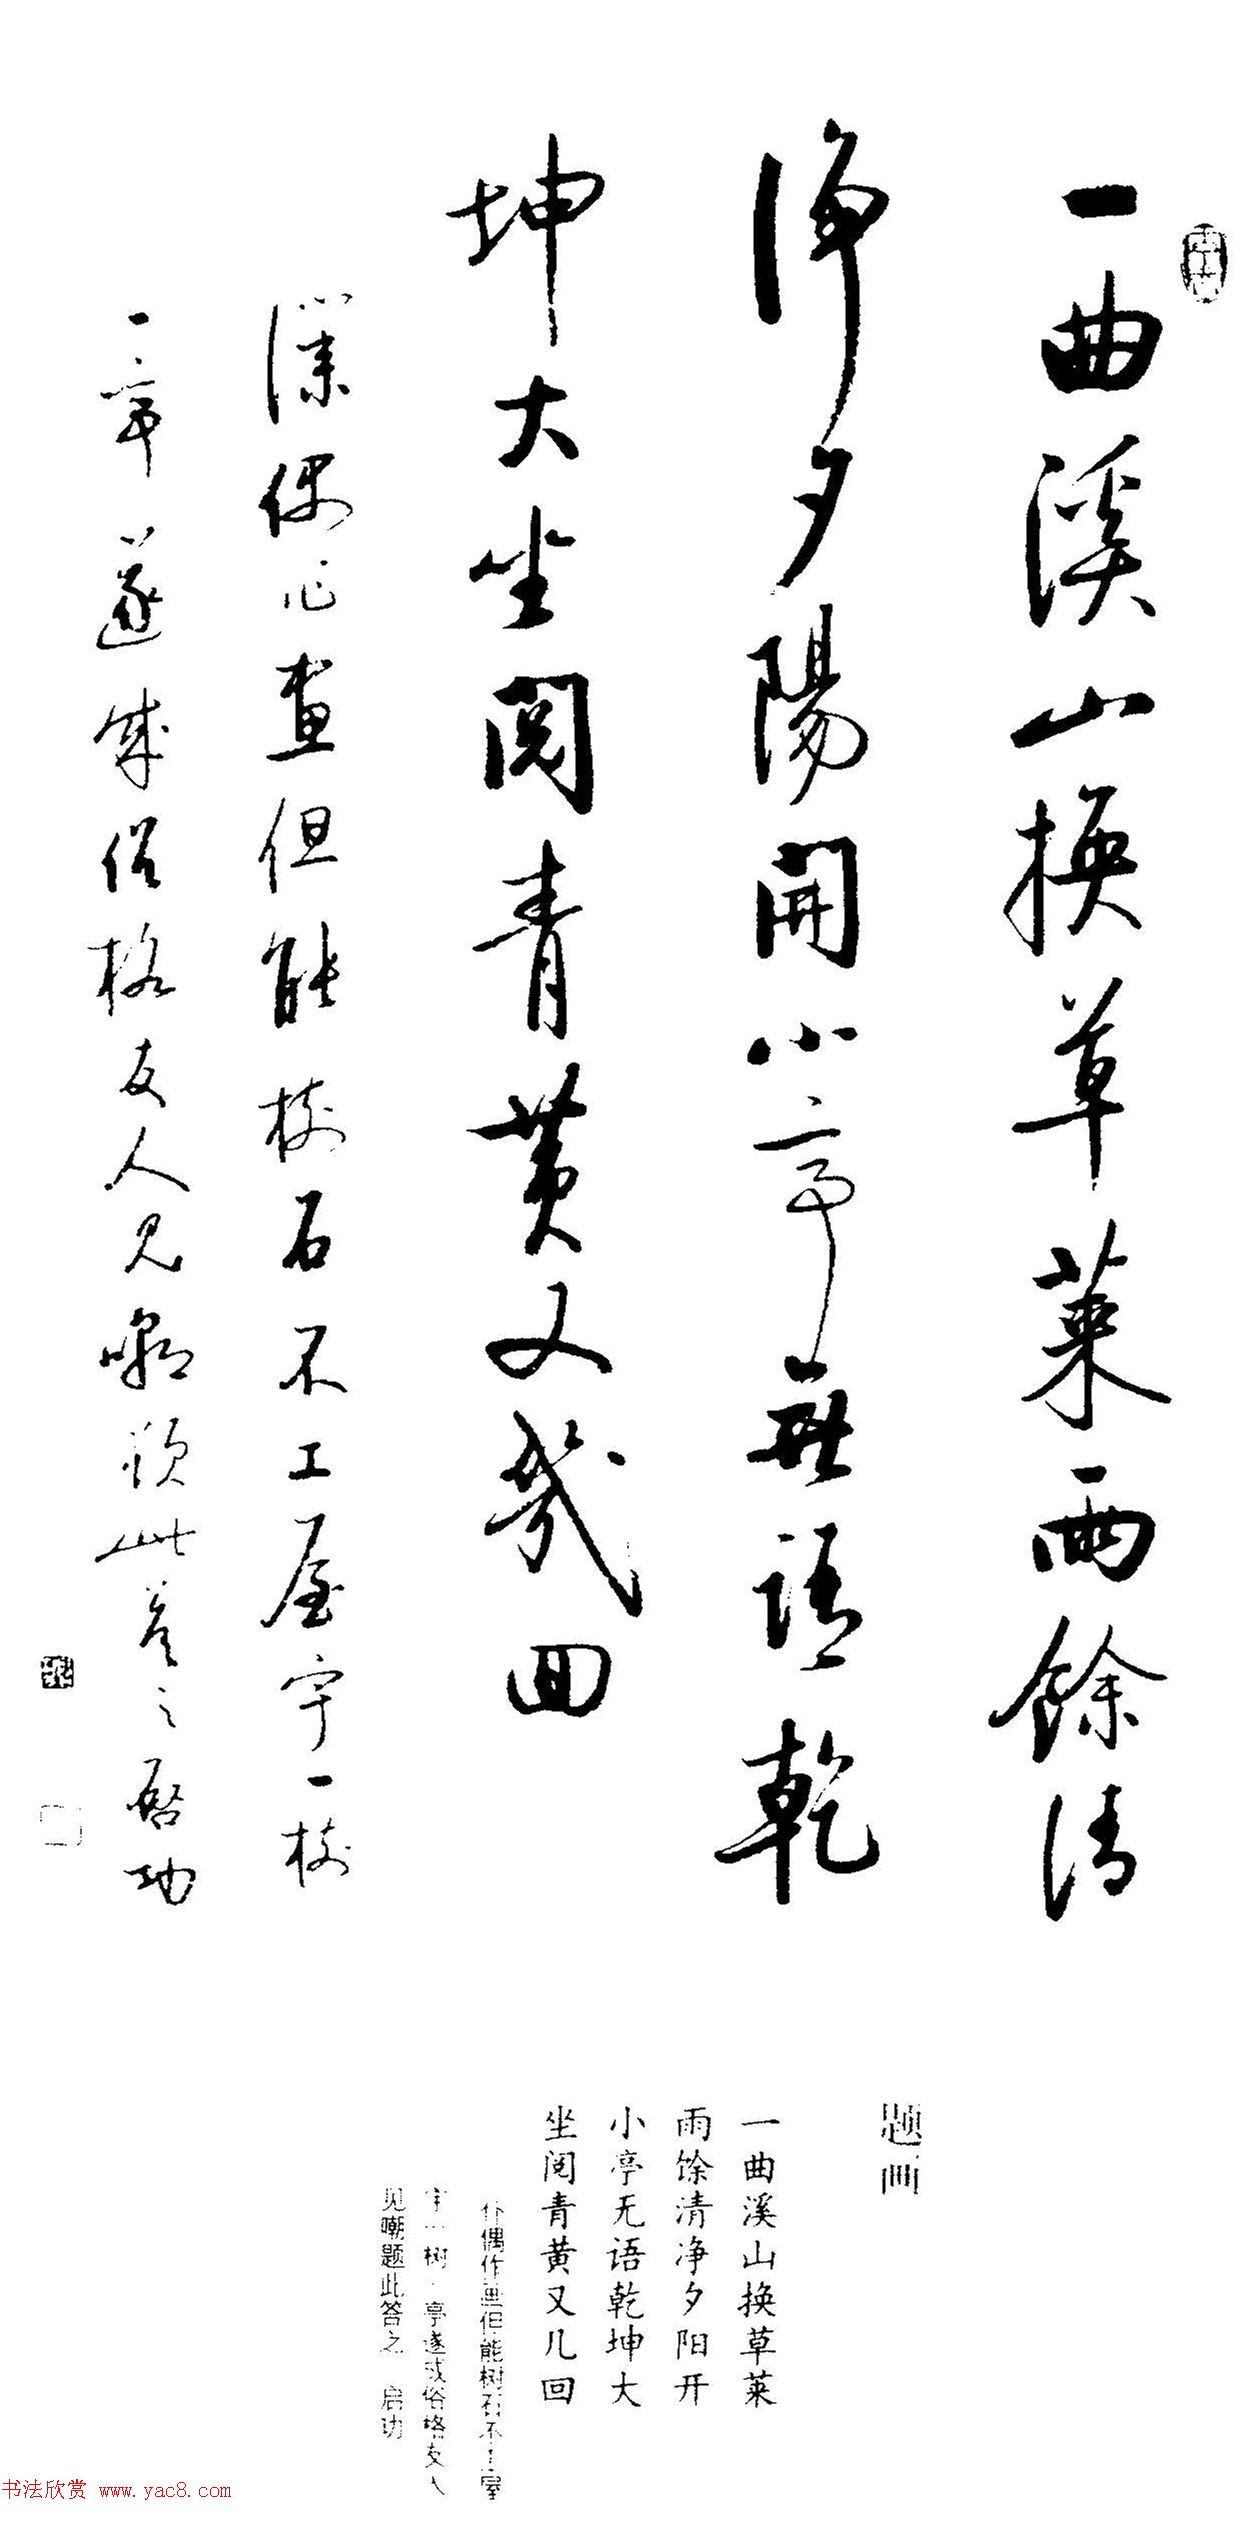 一曲溪山換草萊雨餘清
淨夕陽開小亭無語乾
坤大坐閱青黃又幾回
僕偶作畫但能樹石不工屋宇一樹
一亭遂成俗格友人見嘲題此答之啓功
题画
一曲溪山换草莱
雨馀清净夕阳开
小亭无语乾坤大
坐阅青黄又几回
仆偶作画但能树石不工室
宇一树一亭遂成俗格友人
见嘲题此答之 启功
书法欣赏 www.yac8.com